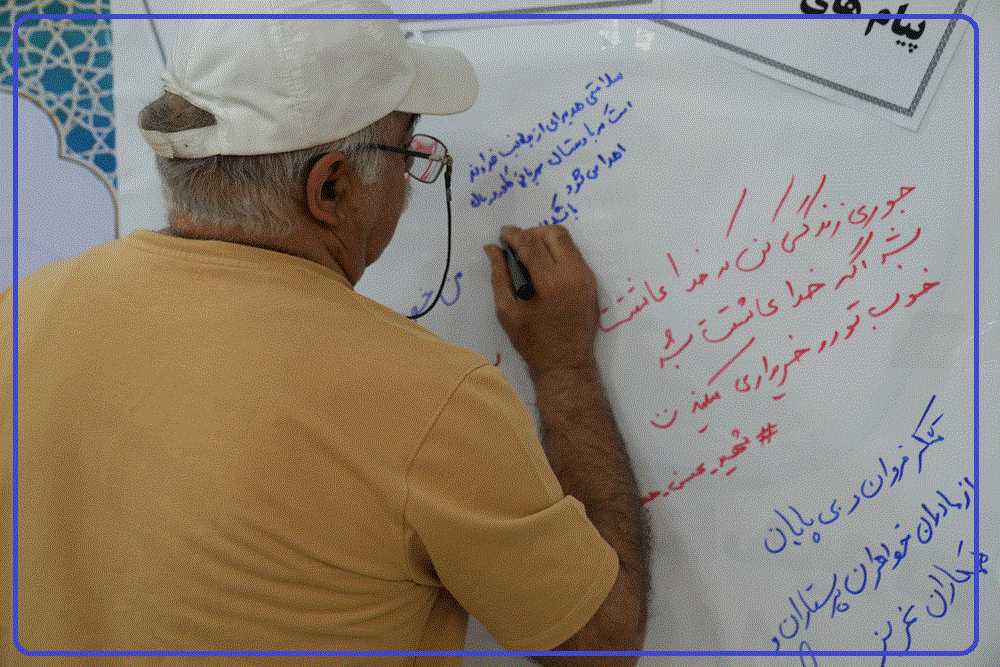 پیام های
سلامتی هدیه‌ای از جانب خداوند
است که با دستان مهربان
اهدا می شود
باشد
من
جوری زندگی کن که خدا عاشقت
بشه اگر خدا عاشقت بشه
خوب تو رو خریداری میکند
# شهید_محسن_حج
تشکر فراوان و بی پایان
از مادران خواهران پرستاران و
همکاران عزیز